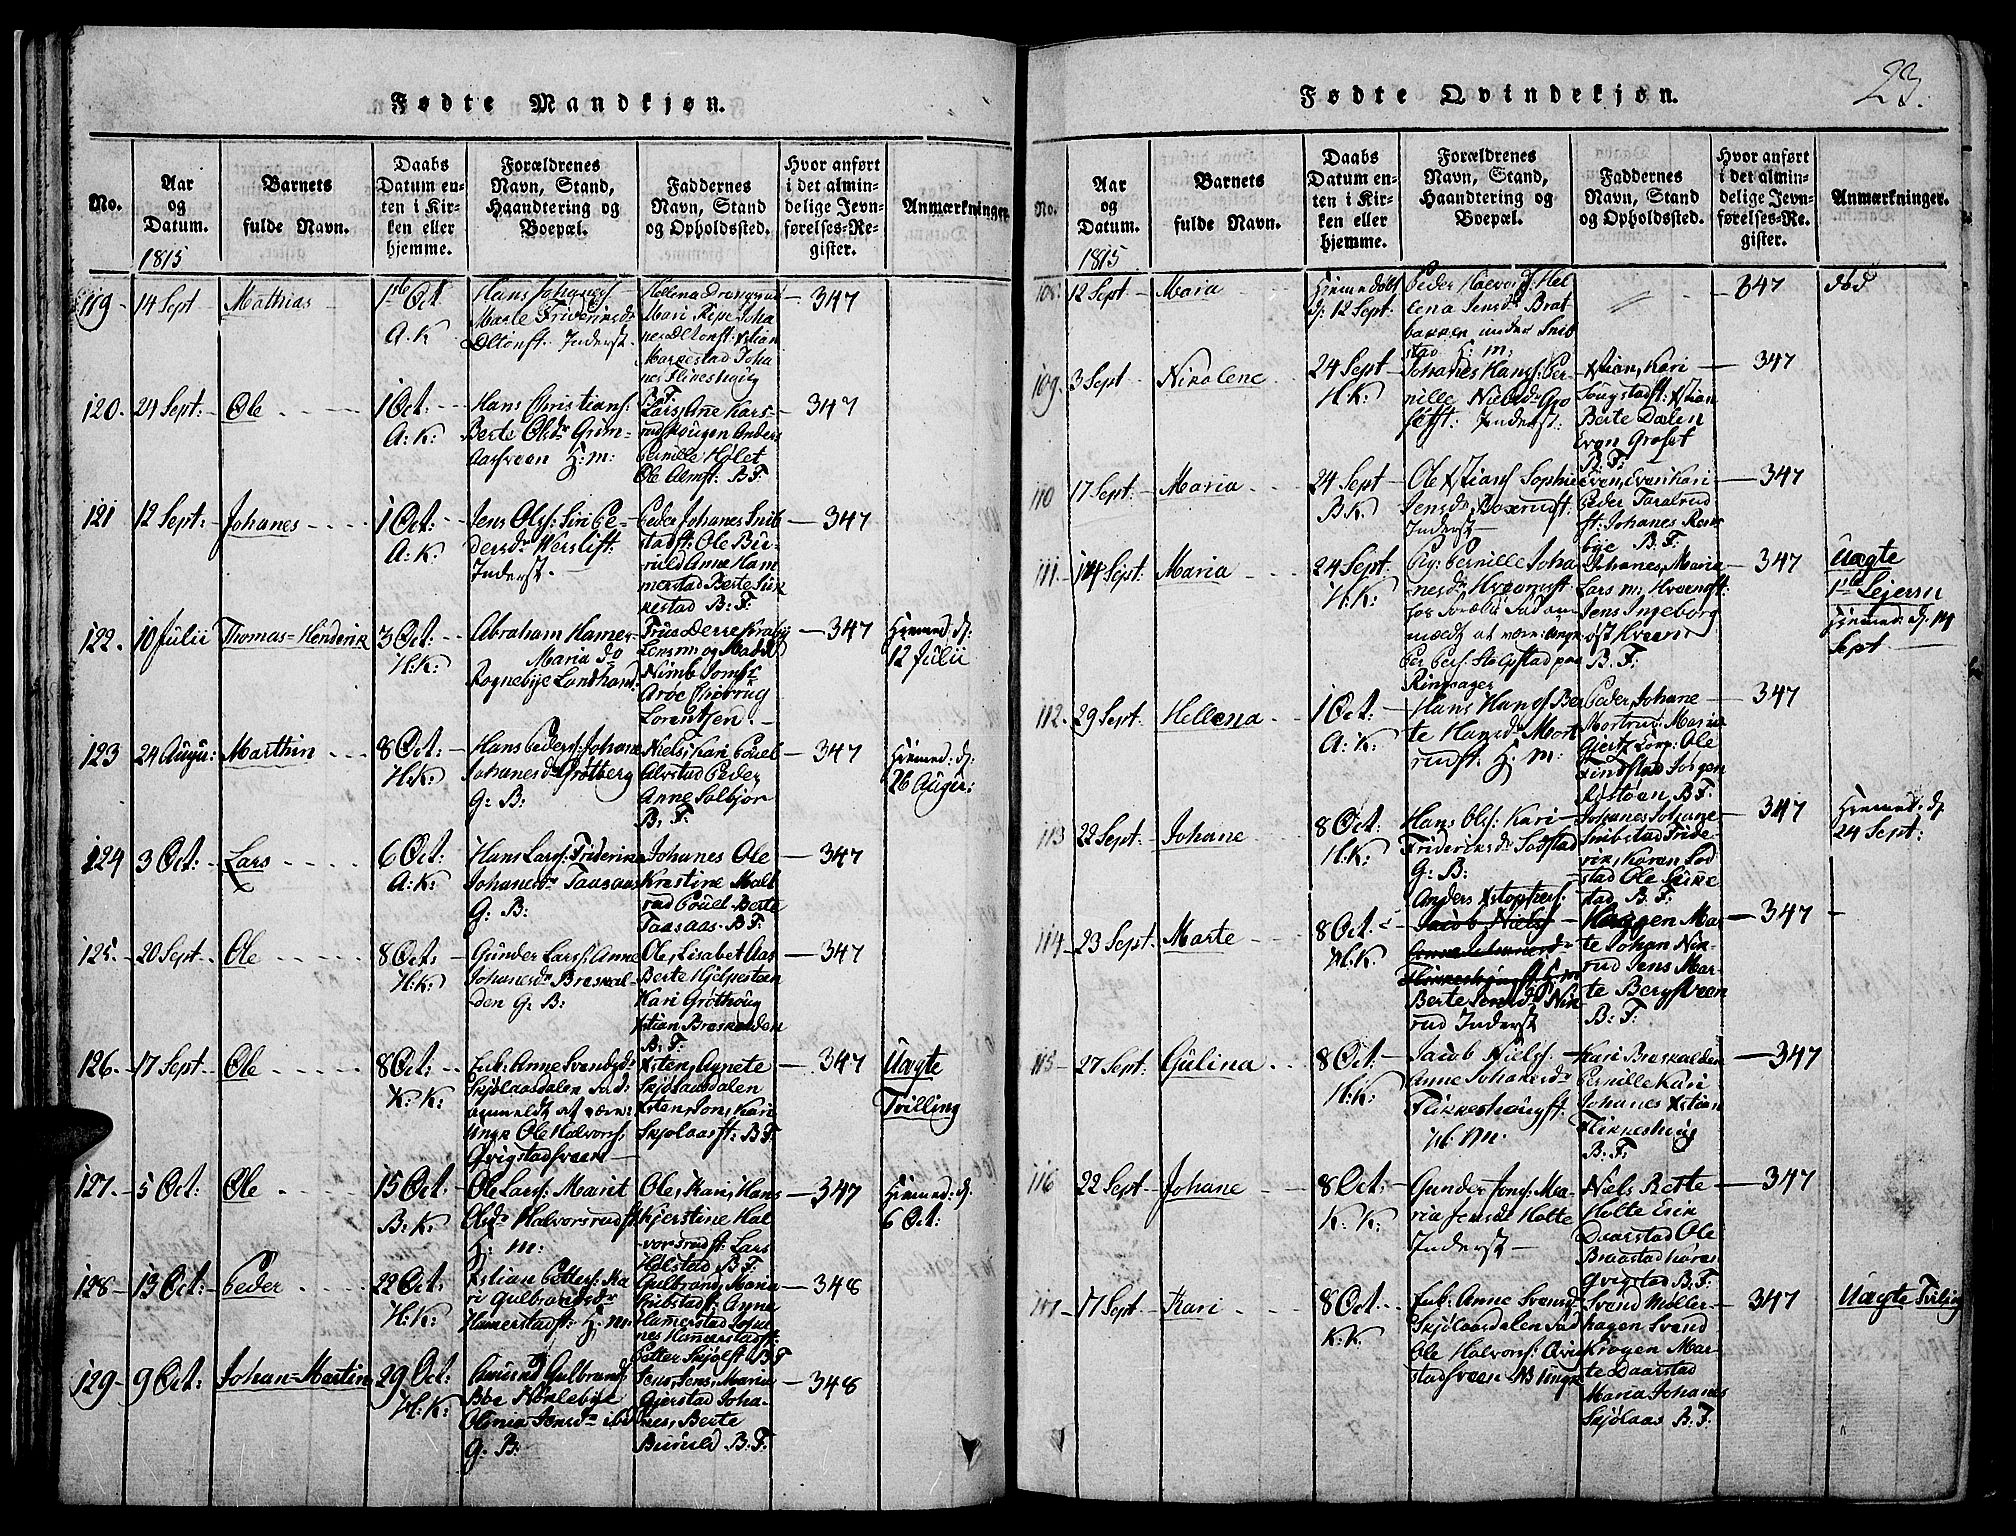 23.
Fødte Mandkjøn.
No.
Aar
og
Datum.
1815
Barnets
fulde Navn.
Daabs
Datum en-
ten i Kir-
ken eller
hjemme.
Forældrenes
Navn, Stand,
Haandtering og
Boepæl.
Faddernes
Navn, Stand
og Opholdssted.
Hvor anført
i det almin-
delige Jevn-
førelses-Re-
gister.
Anmærkninger.
119 14 Sept Mathias
1 Oct
A. K
Hans Johanes
Inderst
347
120. 21 Sept: Ole
1 Oct:
A: K:
Hans Christians:
Berte Olsdr Grøm-
aassveen H: m:
Lars, Ane Kars-
rudhougen Anders
Pernille Holet
Ole Almst: B F.
347
121 12 Sept: Johanes
1 Oct:
A: K:
Jens Ols: Siri Pe-
dersdr Werslift:
Inderst.
Peder Johanes Snib
stadst: Ole Bu-
ruld Anne Ham
merstad Berte Sin
nestad B: F:
347
122. 10 Julii Thomas=Henderik
3 Oct:
H: K:
Abraham Hamer-
Maria do
Rognebye Landhan
Lensm: og Mad
Lorentzen
347
Hjemed: d:
12 Julii
123 24 Augu: Marthin
8 Oct:
H: K:
Hans Peders: Johane
Johanesdr Grøtberg
G: B:
Niels, Kari Povel
Alvstad Peder
Anne Solbjør
B: F:
347
Hjemed: d:
26 Augu:
124 3 Oct: Lars
6 Oct:
A: K:
Hans Lars: Friderike
Johanesdr Taasaas
G: B:
Johanes Ole
Kristine Malt
rud Povel Berte
Taasaas B: F:
347
125. 20 Sept Ole
8 Oct:
H: K:
Gunder Lars: Anne
Johanesdr Braskal-
den G: B:
Ole, Lisabet Aas
Berte Hjelpesteen
Kari Grøthoug
Xstian Braskalden
B: F:
347
126. 17 Sept Ole
8 Oct:
K: K:
Fuk: Anne Svendsdr
Skjolaasdalen
anmeldt at være:
Ungk Ole Halvors:
Qvigstadsveen
Xsten, Agnete
Skjolaasdalen
Xsten, Jens, Kari
Skjolaast: B: F.
347
Uægte
Tvilling
127. 5 Oct: Ole
15 Oct:
B: K:
Ole Lars: Marit
Olsdr Halvorsrudst
H: m:
Ole, Kari, Hans
Kjerstine Hal
vorsrudst: Lars
Holstad B: F.
347
Hjemed: d:
6 Oct:
128 13 Oct: Peder
22 Oct:
H: K:
Xstian Petters: Ka
ri Gulbrandsdr
Hamerstadst: H: m:
Gulbrand, Maria
Snibstadst: Anne
Hamerstad Joha
nes Hamerstadst:
Petter Skjolst B F
348
129 9 Oct: Johan=Martin
29 Oct:
H: K:
Amund Gulbrands
Boe Nøklebye
Olinia Jensdr ibd
G: B:
Jens, Jens, Maria
Gjerstad Joha-
nes, Berte
Buruld B. F.
348
Fødte Qvindekjøn.
No.
Aar
og
Datum.
1815
Barnets
fulde Navn.
Daabs
Datum en-
ten i Kir-
ken eller
hjemme.
Forældrenes
Navn, Stand,
Haandtering og
Boepæl.
Faddernes
Navn, Stand
og Opholdssted.
Hvor anført
i det almin-
delige Jevn-
førelses-Re-
gister.
Anmærkninger.
108. 12 Sept Maria
Hjemedøbt
d: 12 Sept.
Peder Halvors: Hel
lena Jensdr Brat
bakken under Snib
stad H: m:
347
død
109. 3 Sept Nikolene
24 Sept
H. K.
Johanes Hans: Per-
nille Nielsdr Gro
setst: Inderst:
Xstian, Kari
Xstian
Berte Dalen
Even Groset
B. F:
347
110 17 Sept: Maria
24 Sept
B K:
Ole Xstians Sophie
Jensdr
Inderst
Even, Even Kari
Peder Taralrud
st: Johanes
bye B. F:
347
111. 14 Sept: Maria
24 Sept
H: K:
Pig: Pernille Joha
nesdr Hveemst
Ringsager
Johanes, Maria
Lars
Jens Ingeborg
øst Hveem
B. F:
347
Uægte
1te Lejersm
Hjemed: d. 14
Sept
112. 29 Sept: Hellena
1 Oct:
A: K:
Hans Hans: Ber
te Hansdr Mort
rudst: H: m:
Peder Johane
Mortrud, Marie
Gjertz Corp: Ole
Findstad Jørgen
Røstøen, B F.
347
113 22 Sept: Johane
8 Oct:
H: K:
Hans Ols: Kari
Frideriksdr Sogstad
G: B:
Johanes Johane
Snibstad Fride-
rik, Karen Sog
stad Ole Sinne
stad B. F:
347
Hjemed: d:
24 Sept:
114 23 Sept: Marte
8 Oct:
H: K
Anders Xstophers:
Jacob Niels
Berte Jensdr Nik
rud Inderst
Haagen Mar
te Johan Nik-
rud Jens Mar-
te Bergsveen
B: F:
347
115 27 Sept: Gulina
8 Oct:
H: K:
Jacob Niels:
Anne Johanesdr
Flikkeshougst:
H: m:
Kari Braskalden
Pernille Kari
Johanes Xstian
Flikkeshoug
B: F:
347
116 22 Sept Johane
8 Oct:
K: K:
Gunder Jons: Ma-
ria Jensdr Holte
Inderst
Niels Berte
Holte Erik
Daarstad Ole
Braastad Karen
Qvigstad B: F:
347
117 17 Sept Kari
8 Oct:
K: K:
Fuk: Anne Svensdr
Skjolaasdalen
Ole Halvors: Qvig
stadsveen Ungk
Svend Møller-
hagen Svend
Krogen Mar-
te Daarstad
Maria Johanes
Skjolaas B. F:
347
Uægte Tviling